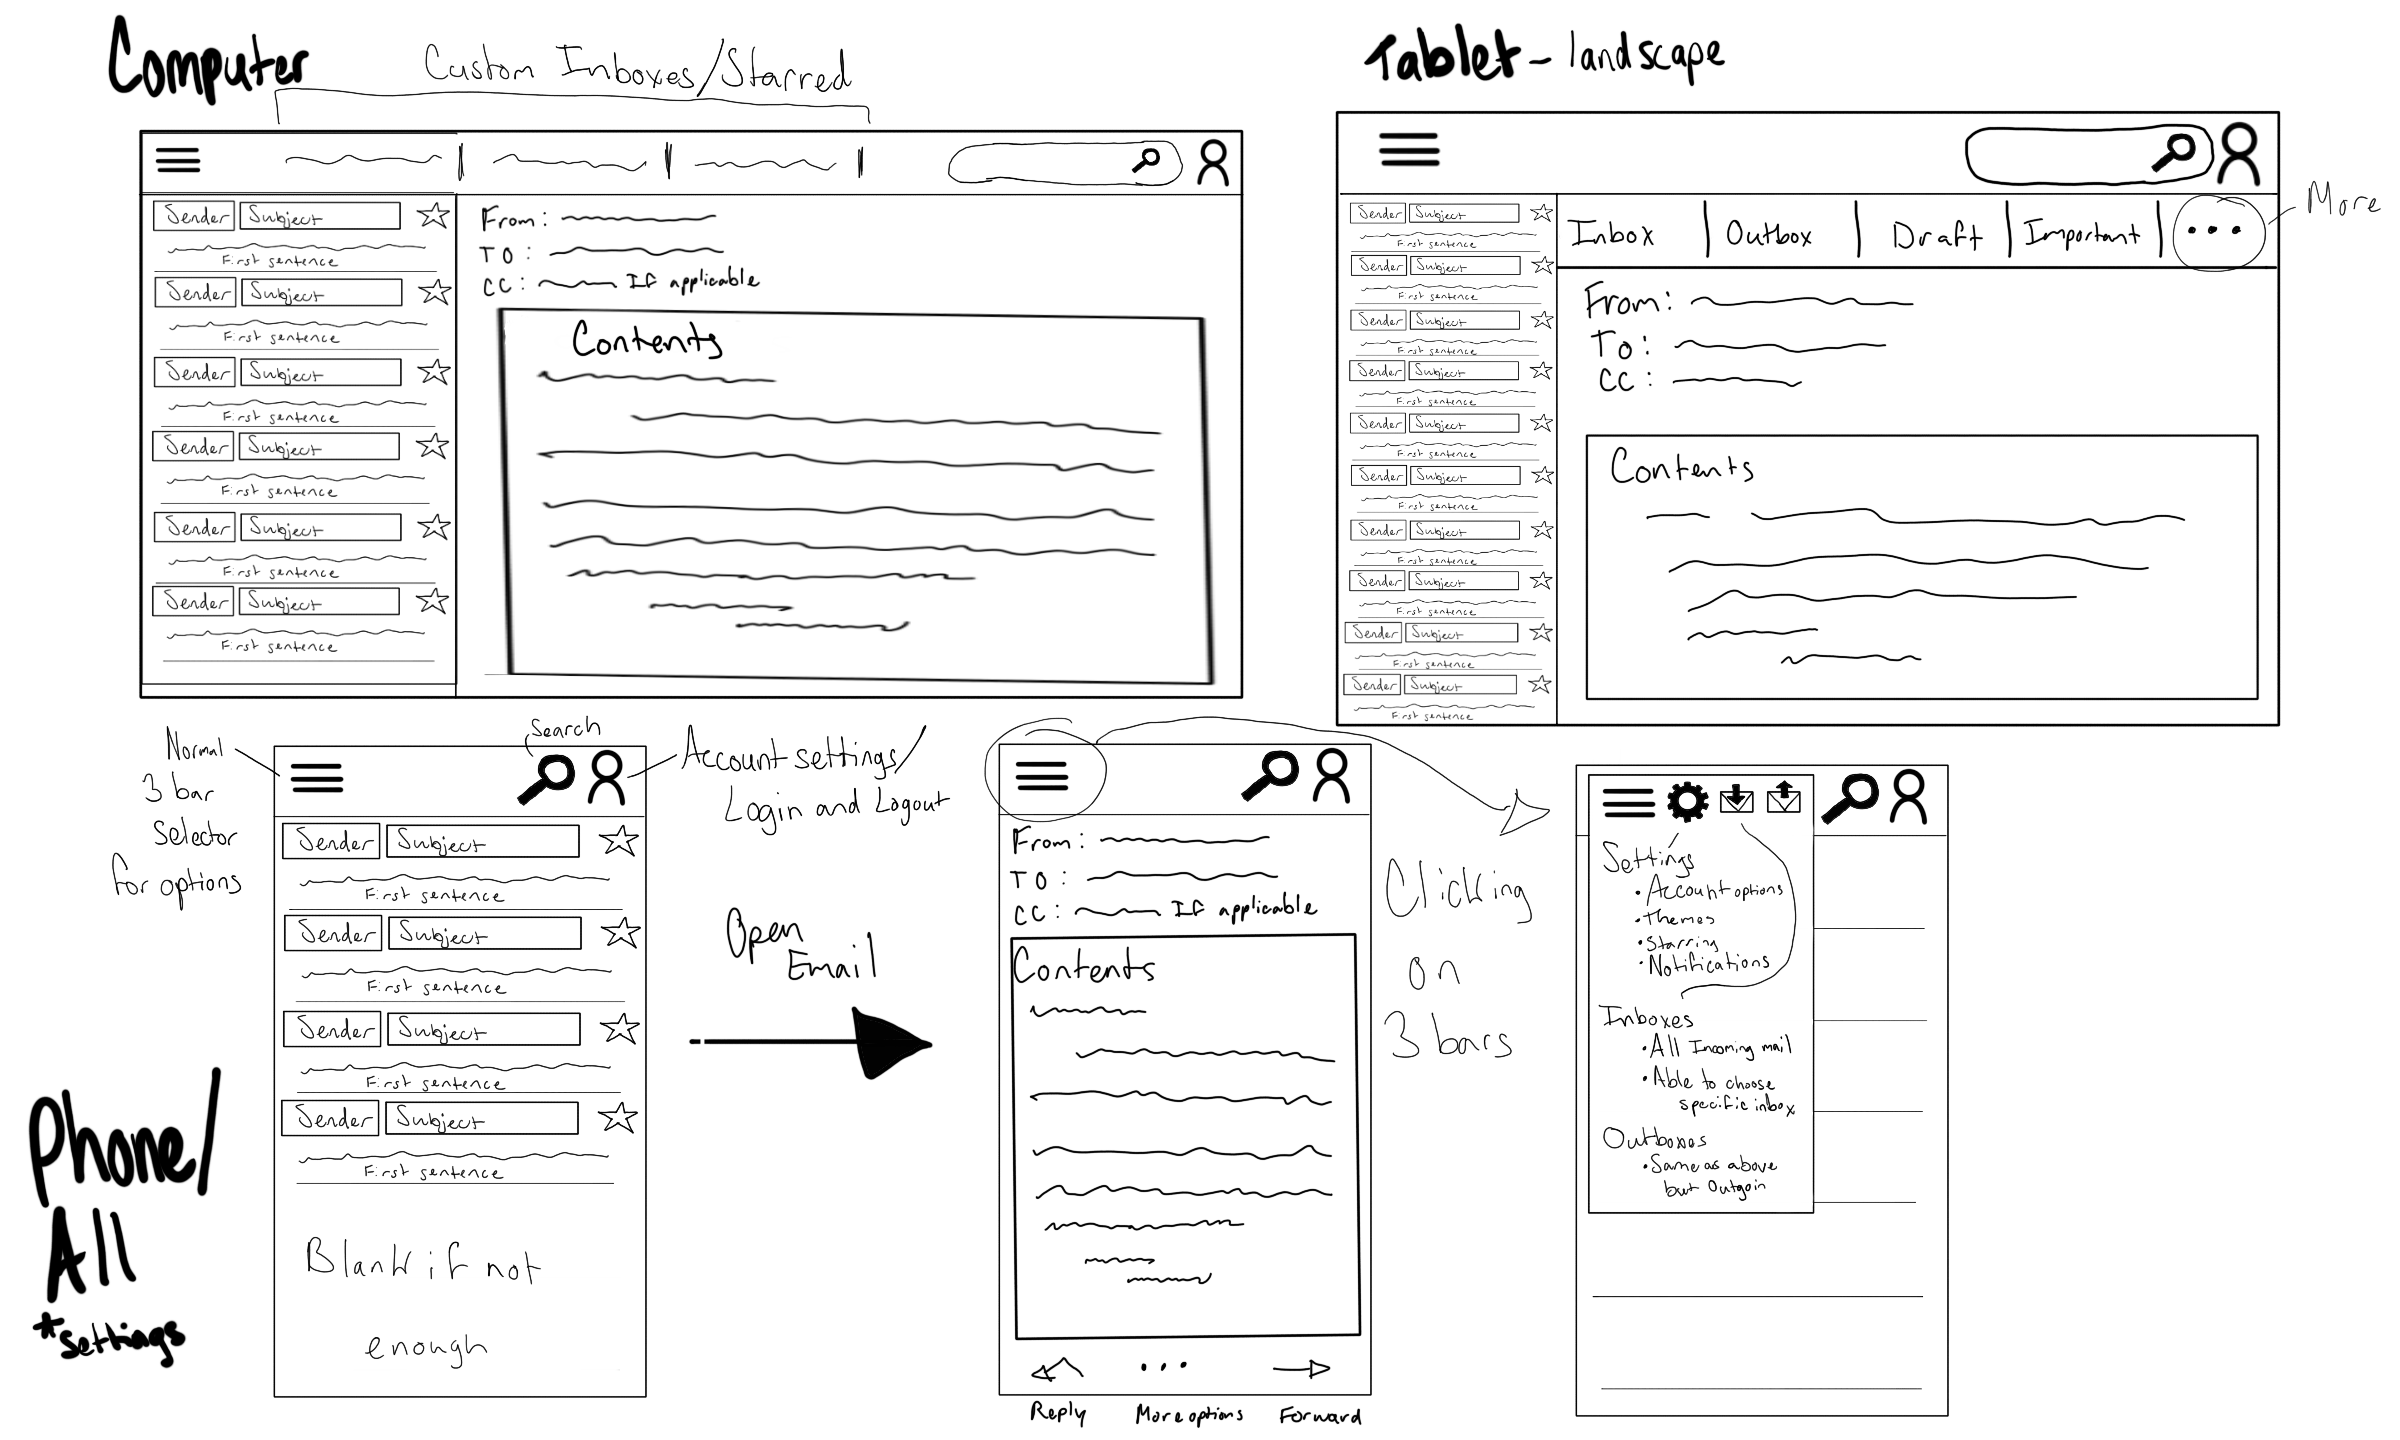 Computer
Custom Inboxes/Starred
Sender Subject
First sentence
Sender Subject
First sentence
Sender Subject
First sentence
Sender Subject
First sentence
Sender Subject
First sentence
Sender Subject
First sentence
From:
TO:
CC: If applicable
Contents
Tablet - landscape
More
Sender Subject
First sentence
Sender Subject
First sentence
Sender Subject
First sentence
Sender Subject
First sentence
Sender Subject
First sentence
Sender Subject
First sentence
Sender Subject
First sentence
Sender Subject
First sentence
Sender Subject
First sentence
Sender Subject
First sentence
Inbox | Outbox | Draft | Important | ...
From:
To:
CC:
Contents
Phone/
All
*settings
Normal
3 bar
Selector
for options
Search
Account settings/
Login and Logout
Sender Subject
First sentence
Sender Subject
First sentence
Sender Subject
First sentence
Sender Subject
First sentence
Blank if not
enough
Open
Email
From:
TO:
CC: If applicable
Contents
...
Reply More options Forward
Clicking
on
3 bars
Settings
• Account options
• Themes
• Starring
• Notifications
Inboxes
• All Incoming mail
• Able to choose
specific inbox
Outboxes
• Same as above
but Outgoin